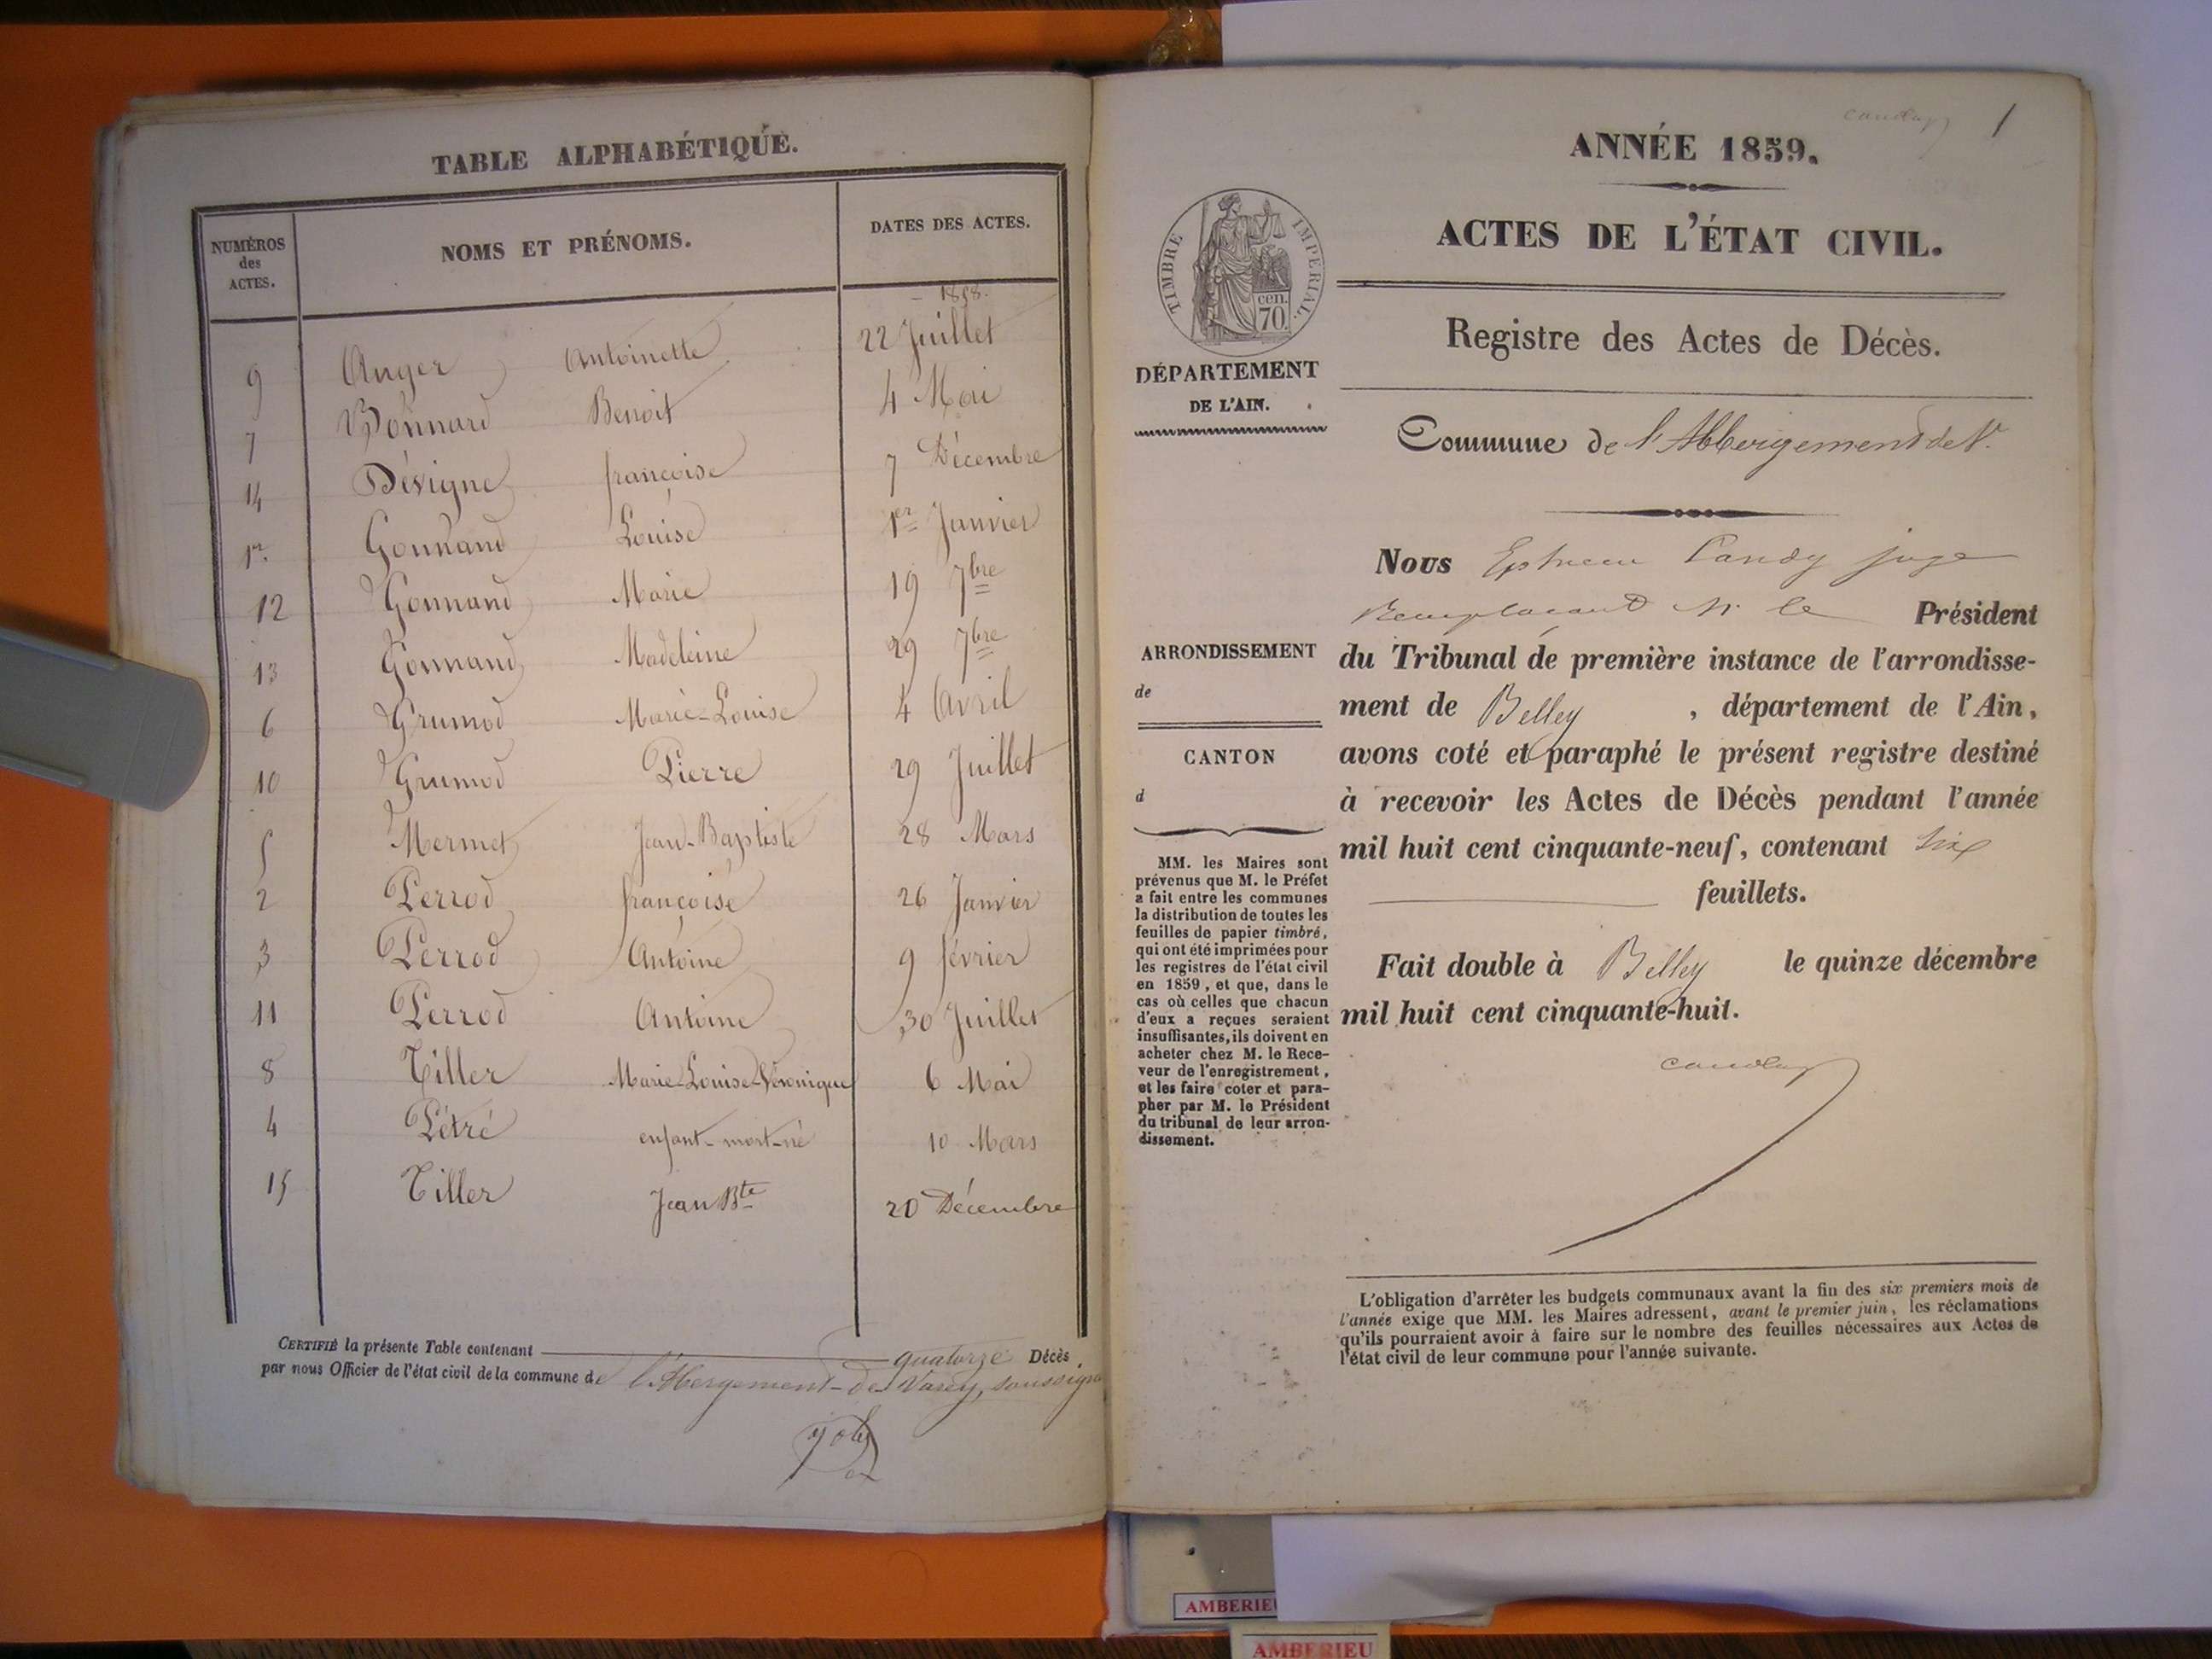 TABLE ALPHABÉTIQUE.
NUMÉROS des ACTES.
NOMS ET PRÉNOMS.
DATES DES ACTES.
1858.
9 Anger Antoinette 22 Juillet
7 Bonnard Benoit 4 Mai
14 Dévigne françoise 7 Décembre
1er Gonnand Louise 1er Janvier
12 Gonnand Marie 19 7bre
13 Gonnand Madeleine 29 7bre
6 Grumod Marie-Louise 4 Avril
10 Grumod Pierre 29 Juillet
5 Mermet Jean-Baptiste 28 Mars
2 Perrod françoise 26 Janvier
3 Perrod Antoine 9 février
11 Perrod Antoine 30 Juillet
8 Tiller Marie-Louise-Véronique 6 Mai
4 Pétré enfant-mort-né 10 Mars
15 Tiller Jean Bte 20 Décembre
CERTIFIÉ la présente Table contenant quatorze Décès
par nous Officier de l'état civil de la commune de l'Abergement-de-Varey, soussigné
1
ANNÉE 1859.
ACTES DE L'ÉTAT CIVIL.
TIMBRE IMPERIAL.
cen.
70.
Registre des Actes de Décès.
DÉPARTEMENT
DE L'AIN.
Commune de l'Abbergement de V.
Nous juge
Remplaçant M. le Président
ARRONDISSEMENT
de
du Tribunal de première instance de l'arrondisse-
ment de Belley , département de l'Ain,
CANTON
d
avons coté et paraphé le présent registre destiné
à recevoir les Actes de Décès pendant l'année
mil huit cent cinquante-neuf, contenant six
feuillets.
Fait double à Belley le quinze décembre
mil huit cent cinquante-huit.
MM. les Maires sont
prévenus que M. le Préfet
a fait entre les communes
la distribution de toutes les
feuilles de papier timbré,
qui ont été imprimées pour
les registres de l'état civil
en 1859, et que, dans le
cas où celles que chacun
d'eux a reçues seraient
insuffisantes, ils doivent en
acheter chez M. le Rece-
veur de l'enregistrement,
et les faire coter et para-
pher par M. le Président
du tribunal de leur arron-
dissement.
L'obligation d'arrêter les budgets communaux avant la fin des six premiers mois de
l'année exige que MM. les Maires adressent, avant le premier juin, les réclamations
qu'ils pourraient avoir à faire sur le nombre des feuilles nécessaires aux Actes de
l'état civil de leur commune pour l'année suivante.
AMBERIEU